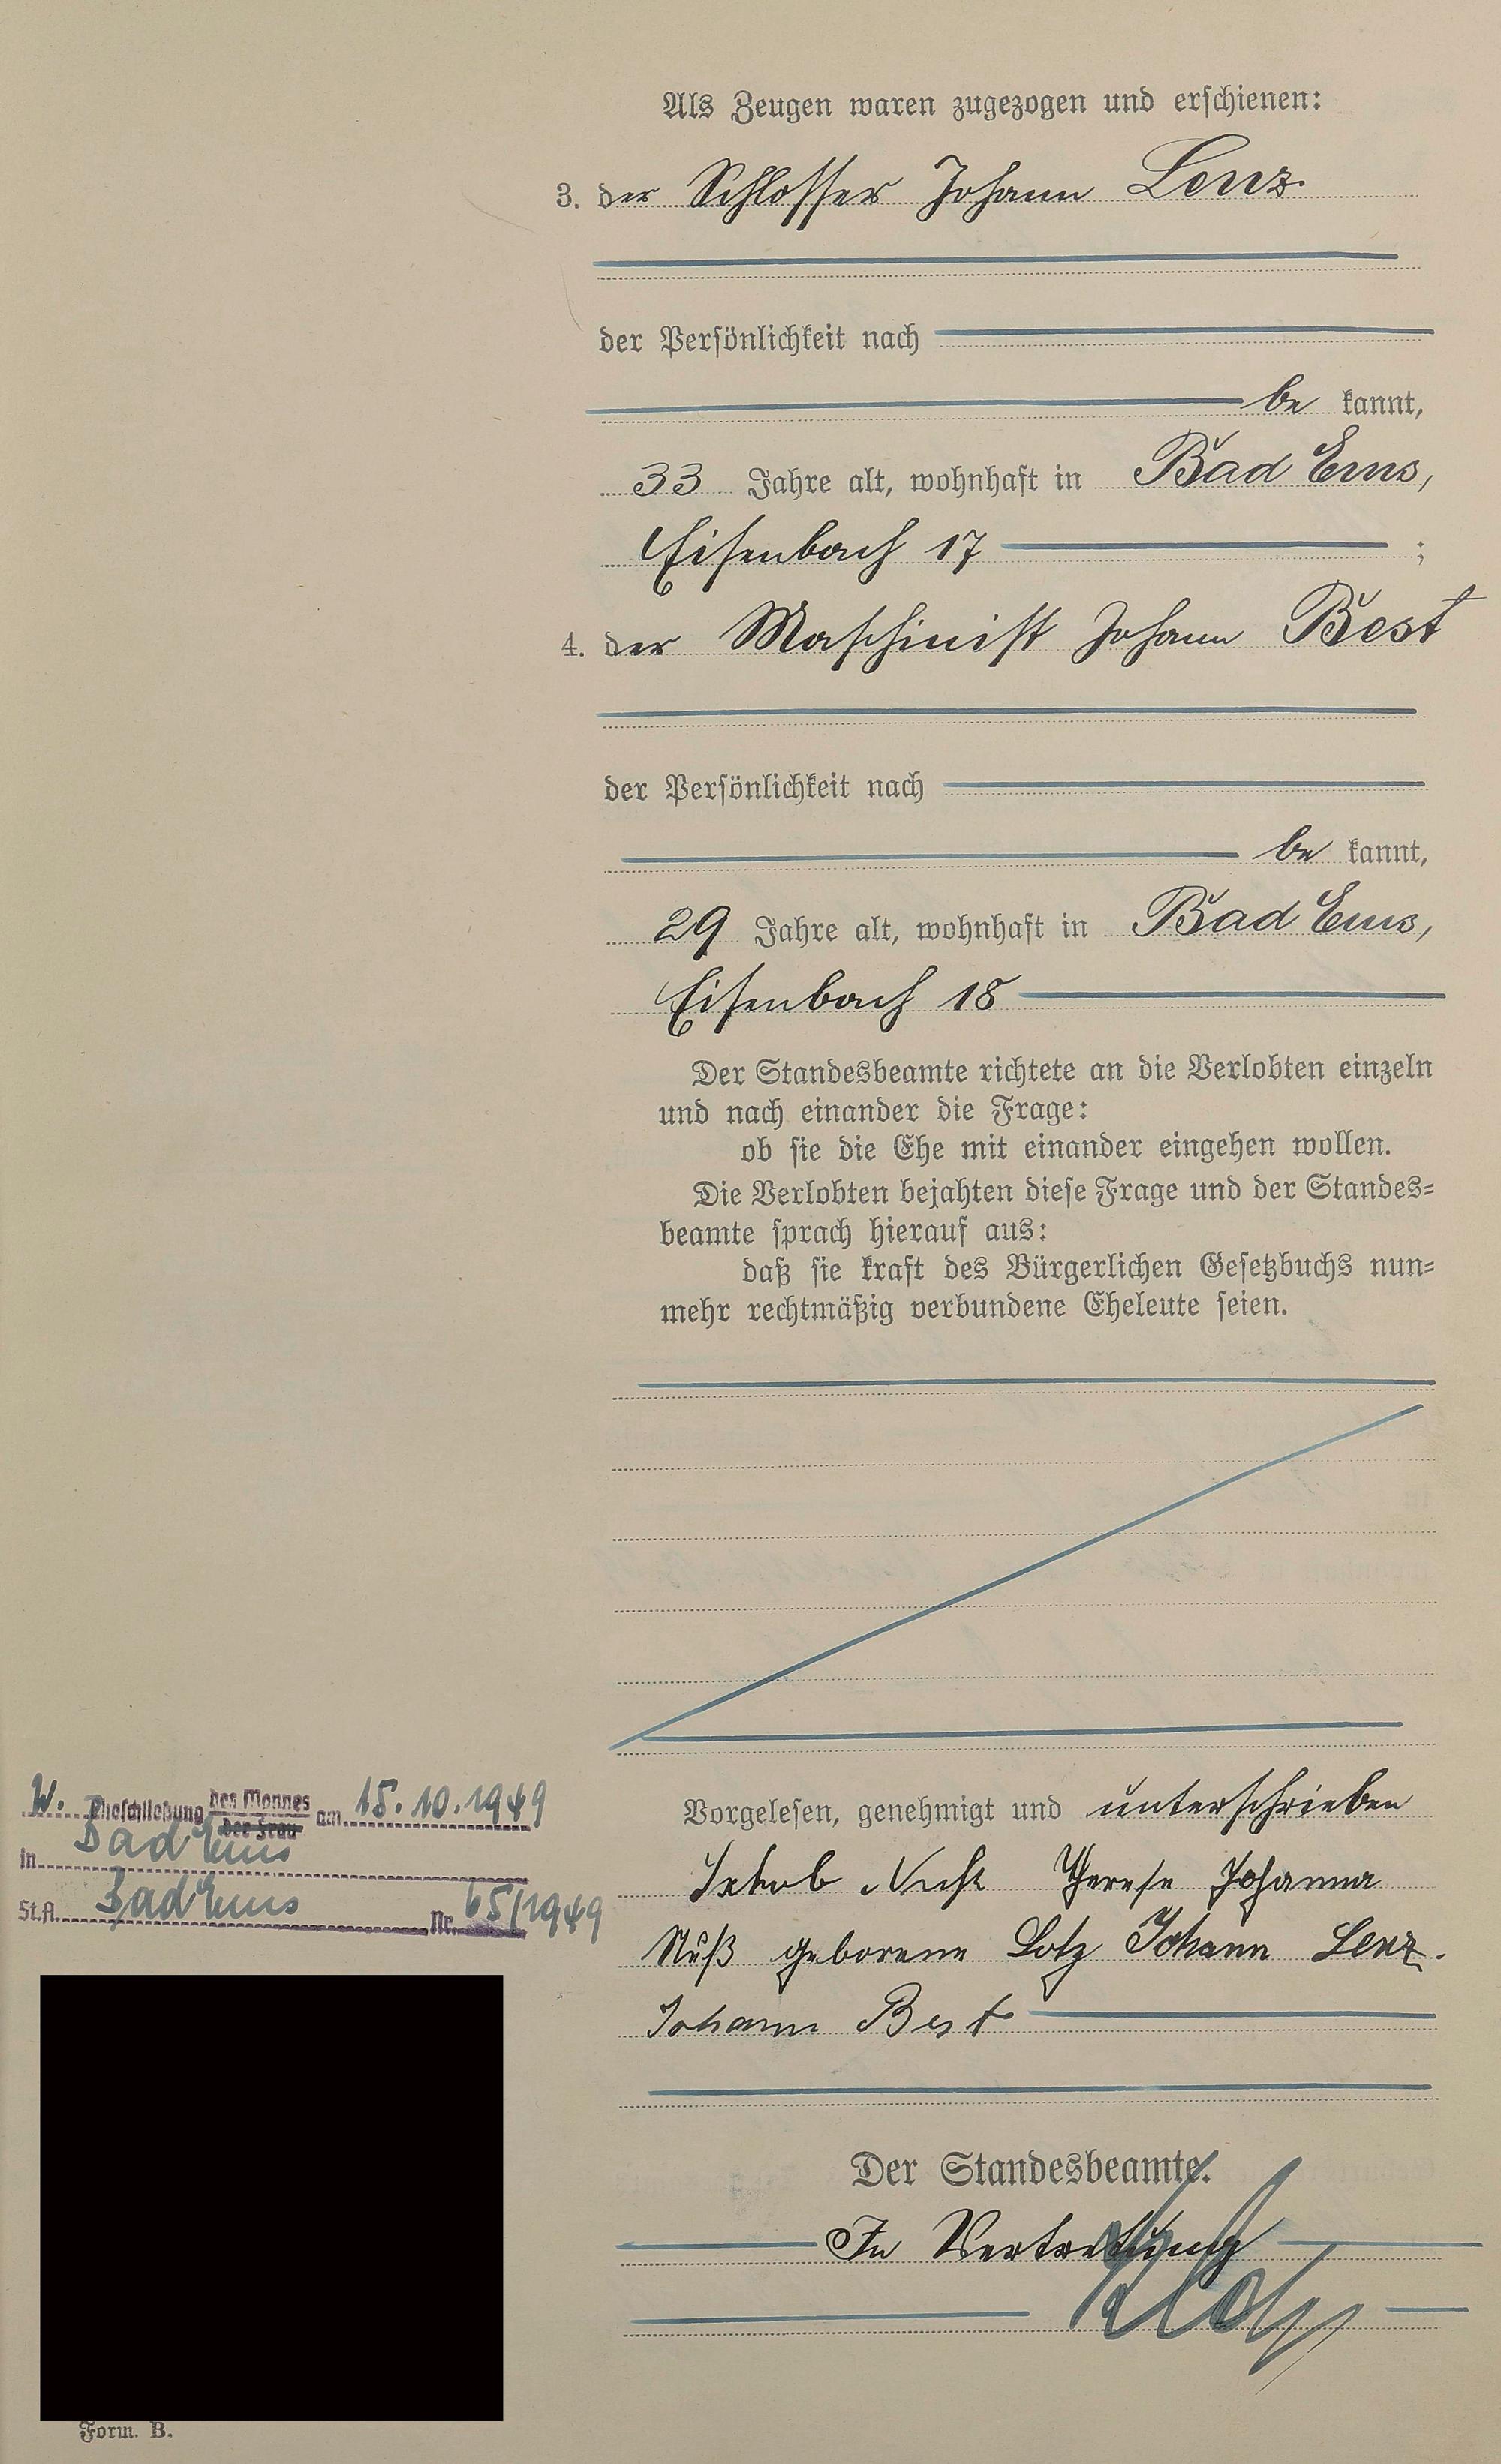 Als Zeugen waren zugezogen und erschienen:
3. der Schlosser Johann Lenz
der Persönlichkeit nach
be kannt,
33 Jahre alt, wohnhaft in Bad Ems,
Eisenbach 17 ;
4. der Maschinist Johann Best
der Persönlichkeit nach
be kannt,
29 Jahre alt, wohnhaft in Bad Ems,
Eisenbach 18
Der Standesbeamte richtete an die Verlobten einzeln
und nach einander die Frage:
ob sie die Ehe mit einander eingehen wollen.
Die Verlobten bejahten diese Frage und der Standes-
beamte sprach hierauf aus:
daß sie kraft des Bürgerlichen Gesetzbuchs nun-
mehr rechtmäßig verbundene Eheleute seien.
Vorgelesen, genehmigt und unterschrieben
Jakob Therese Johanna
Nuß geborene Lotz Johann Lenz.
Johann Best
Der Standesbeamte.
In Vertretung
W. Eheschließung des Mannes der Frau am 15.10.1949
in Bad Ems
St.A. Bad Ems Nr. 65/1949
Form. B.